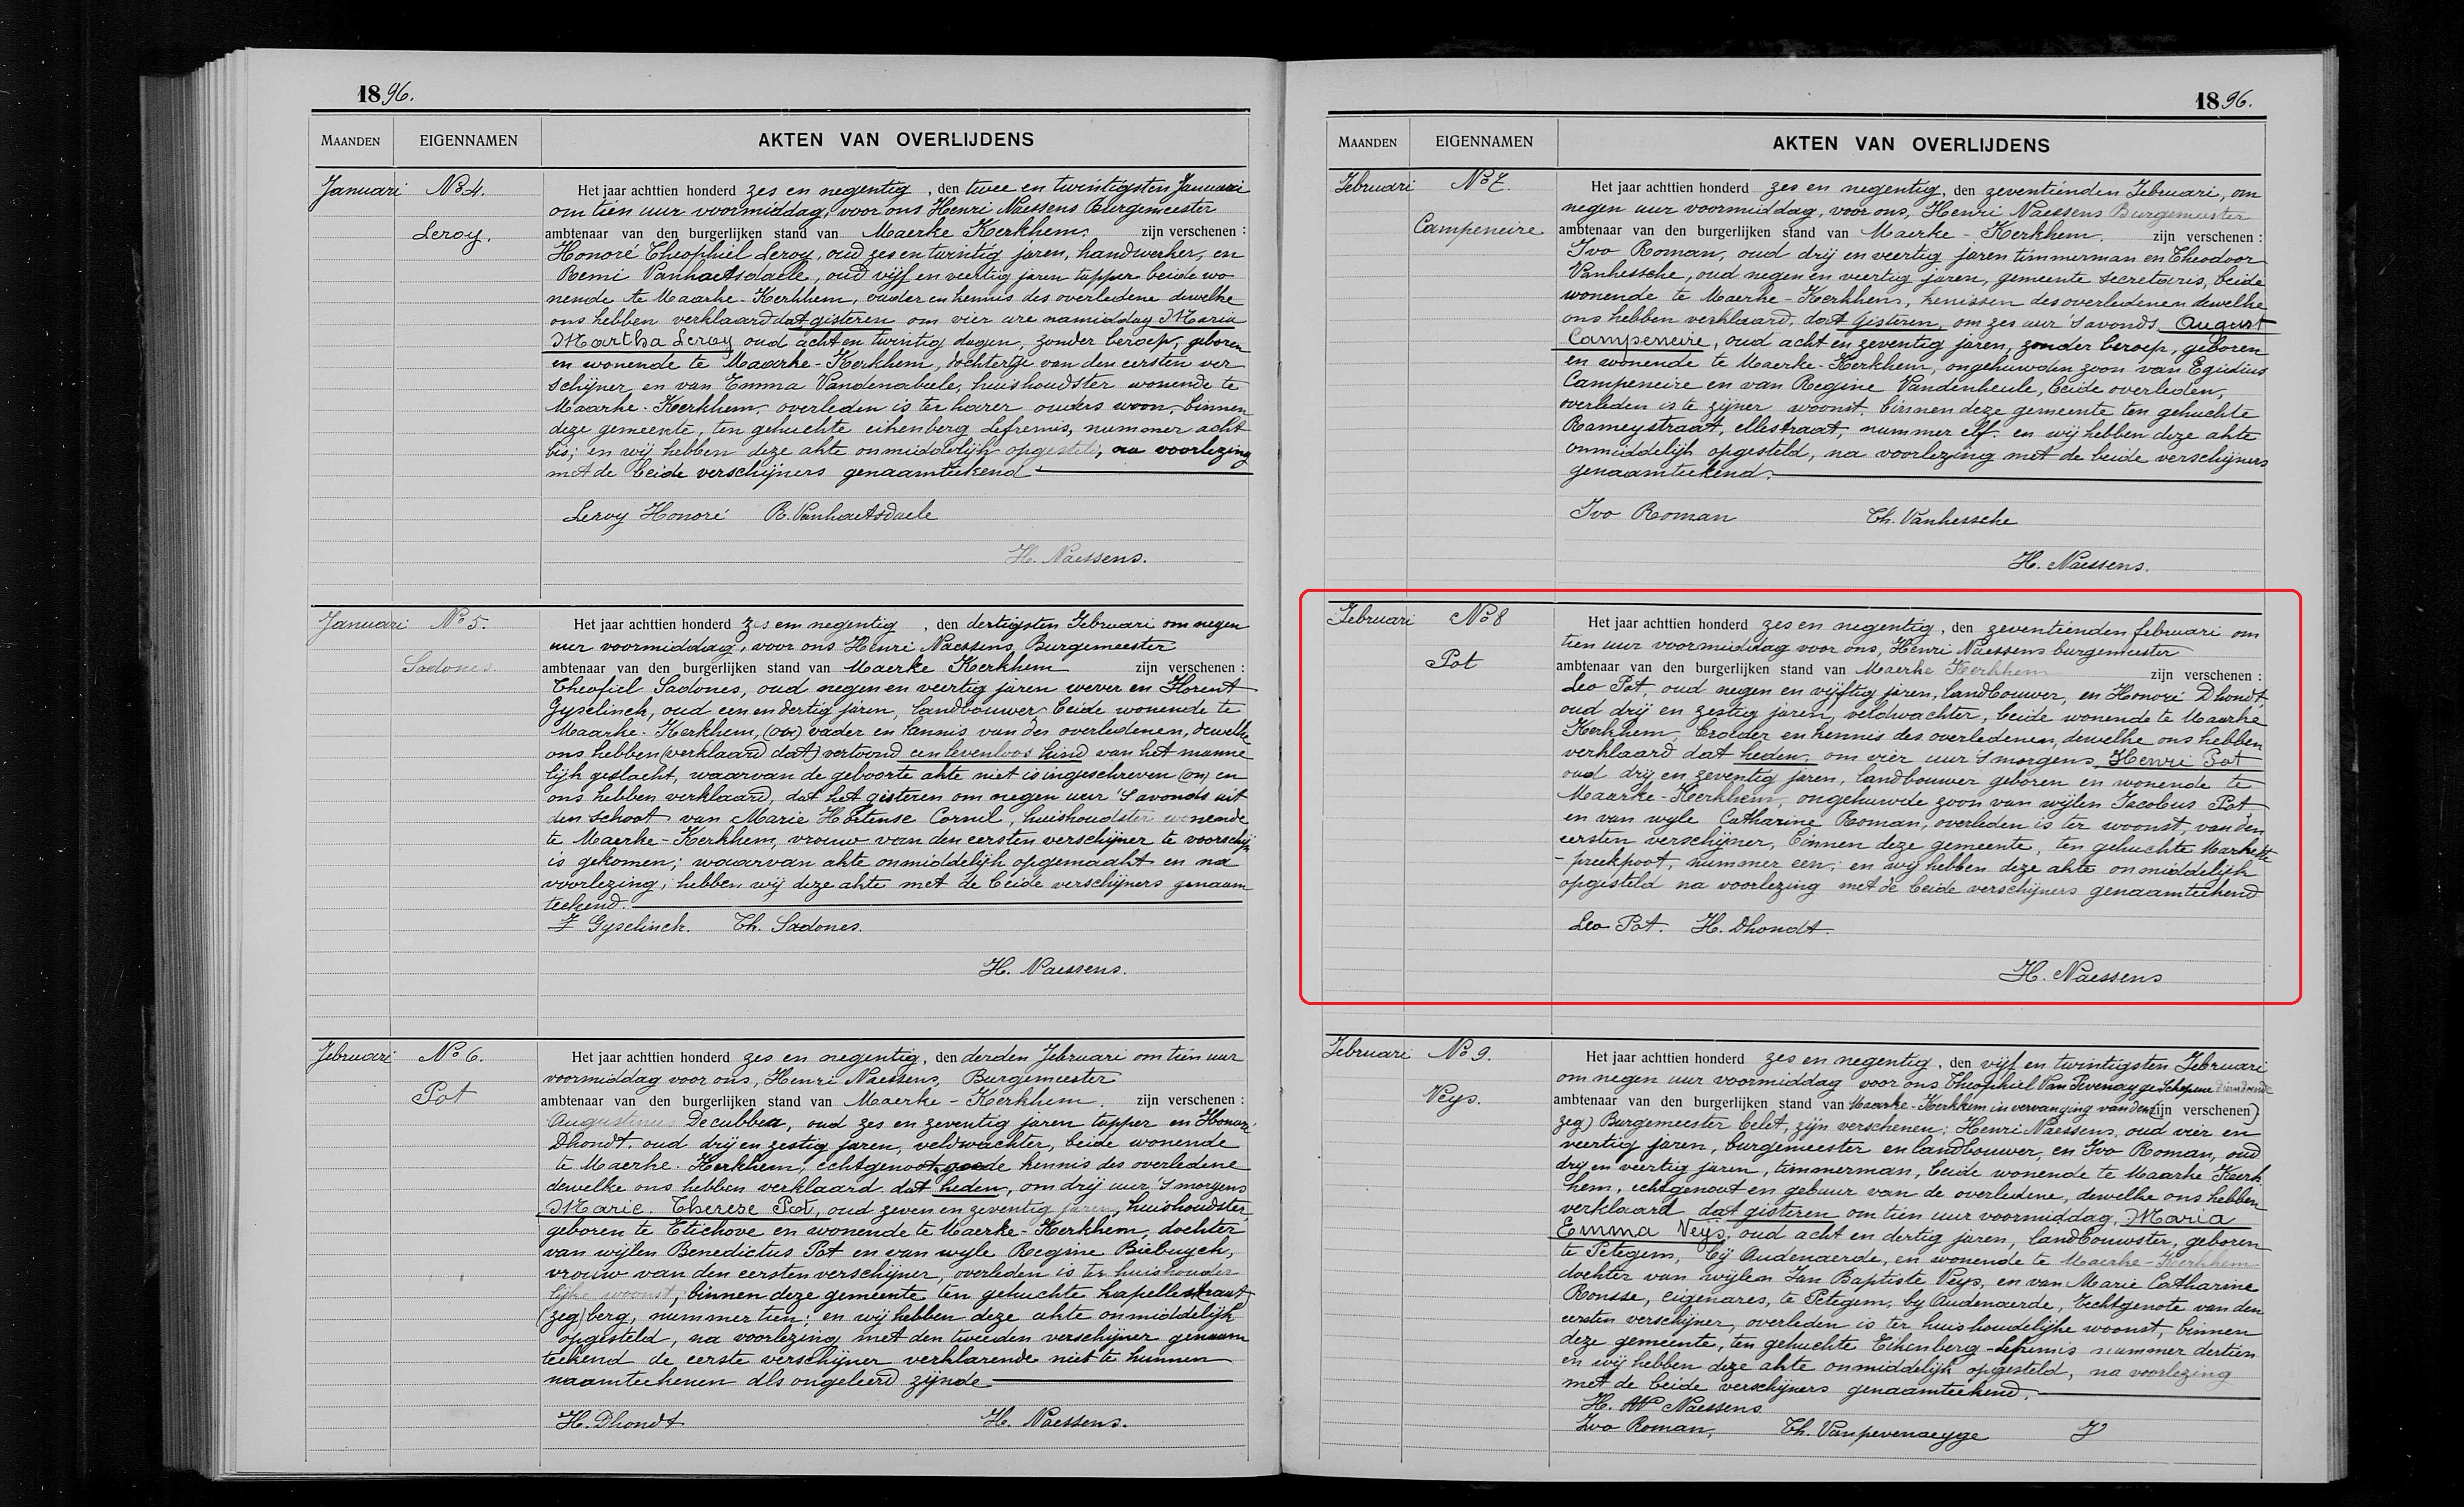 1896.
MAANDEN EIGENNAMEN AKTEN VAN OVERLIJDENS
Januari No 4. Het jaar achttien honderd zes en negentig, den twee en twintigsten Januari
om tien uur voormiddag, voor ons Henri Naessens Burgemeester
Leroy. ambtenaar van den burgerlijken stand van Maerke Kerkhem. zijn verschenen :
Honoré Theophiel Leroy, oud zes en twintig jaren, handwerker, en
Remi Vanhaetsdaele, oud vijf en veertig jaren tapper beide wo
nende te Maarke-Kerkhem, vader en kennis des overledene dewelke
ons hebben verklaard dat gisteren om vier ure namiddag Maria
Martha Leroy oud acht en twintig dagen, zonder beroep, geboren
en wonende te Maarke-Kerkhem, dochtertje van den eersten ver
schijner en van Emma Vandenabeele, huishoudster wonende te
Maarke-Kerkhem, overleden is ter harer ouders woon, binnen
deze gemeente, ten gehuchte eikenberg Lefremis, nummer acht
bis; en wij hebben deze akte onmiddelijk opgesteld, na voorlezing
met de beide verschijners genaamteekend.
Leroy Honoré R. Vanhaetsdaele
H. Naessens.
Januari No 5. Het jaar achttien honderd zes en negentig, den dertigsten Februari om negen
uur voormiddag, voor ons Henri Naessens Burgemeester
Sadones. ambtenaar van den burgerlijken stand van Maerke Kerkhem zijn verschenen :
Theofiel Sadones, oud negen en veertig jaren wever en Florent
Gyselinck, oud een en dertig jaren, landbouwer beide wonende te
Maarke-Kerkhem, vader en kennis van des overledenen, dewelke
ons hebben (verklaard dat) vertoond een levenloos kind van het manne
lijk geslacht, waarvan de geboorte akte niet is ingeschreven (on) en
ons hebben verklaard, dat het gisteren om negen uur 's avonds uit
den schoot van Marie Hortense Cornil, huishoudster wonende
te Maerke-Kerkhem, vrouw van den eersten verschijner te voorschijn
is gekomen; waarvan akte onmiddelijk opgemaakt en na
voorlezing, hebben wij deze akte met de beide verschijners genaam
teekend.
F Gyselinck. Th. Sadones.
H. Naessens.
Februari No 6. Het jaar achttien honderd zes en negentig, den derden Februari om tien uur
voormiddag voor ons, Henri Naessens, Burgemeester
Pot ambtenaar van den burgerlijken stand van Maerke-Kerkhem. zijn verschenen :
Augustinus Decubber, oud zes en zeventig jaren tapper en Honoré
Dhondt. oud drij en zestig jaren, veldwachter, beide wonende
te Maerke-Kerkhem, echtgenoot kennis des overledene
dewelke ons hebben verklaard dat heden, om drij uur 's morgens
Marie Therese Pot, oud zeven en zeventig jaren, huishoudster,
geboren te Etichove en wonende te Maerke-Kerkhem, dochter
van wijlen Benedictus Pot en van wyle Regine Biebuyck,
vrouw van den eersten verschijner, overleden is ter huishoude
lijke woonst, binnen deze gemeente ten gehuchte kapellestraat
(zeg) berg, nummer tien; en wij hebben deze akte onmiddelijk
opgesteld, na voorlezing met den tweeden verschijner genaam
teekend de eerste verschijner verklarende niet te kunnen
naamteekenen als ongeleerd zijnde
H. Dhondt H. Naessens.
1896.
MAANDEN EIGENNAMEN AKTEN VAN OVERLIJDENS
Februari No 7. Het jaar achttien honderd zes en negentig, den zeventienden Februari, om
negen uur voormiddag, voor ons, Henri Naessens Burgemeester
Campeneire ambtenaar van den burgerlijken stand van Maerke-Kerkhem. zijn verschenen :
Ivo Roman, oud drij en veertig jaren timmerman en Theodoor
Vanhessche, oud negen en veertig jaren, gemeente secretaris, beide
wonende te Maerke-Kerkhem, kenissen des overledenen dewelke
ons hebben verklaard, dat gisteren, om zes uur 's avonds, August
Campeneire, oud acht en zeventig jaren, zonder beroep, geboren
en wonende te Maerke-Kerkhem, ongehuwden zoon van Egidius
Campeneire en van Regine Vandenheule, beide overleden,
overleden is te zijner woonst, binnen deze gemeente ten gehuchte
Rameystraat, ellestraat, nummer elf. en wij hebben deze akte
onmiddelijk opgesteld, na voorlezing met de beide verschijners
genaamteekend.
Ivo Roman Th. Vanhessche
H. Naessens.
Februari No 8 Het jaar achttien honderd zes en negentig, den zeventienden februari om
tien uur voormiddag voor ons, Henri Naessens burgemeester
Pot ambtenaar van den burgerlijken stand van Maerke Kerkhem zijn verschenen :
Leo Pot, oud negen en vijftig jaren, landbouwer, en Honoré Dhondt,
oud drij en zestig jaren, veldwachter, beide wonende te Maarke
Kerkhem, broeder en kennis des overledenen, dewelke ons hebben
verklaard dat heden, om vier uur 's morgens, Henri Pot
oud drij en zeventig jaren, landbouwer geboren en wonende te
Maarke-Kerkhem, ongehuwde zoon van wijlen Jacobus Pot
en van wyle Catharine Roman, overleden is ter woonst, van den
eersten verschijner, binnen deze gemeente, ten gehuchte
-preekpoot, nummer een; en wij hebben deze akte onmiddelijk
opgesteld na voorlezing met de beide verschijners genaamteekend
Leo Pot. H. Dhondt.
H. Naessens
Februari No 9. Het jaar achttien honderd zes en negentig, den vijf en twintigsten Februari
om negen uur voormiddag voor ons Theophiel Van Pevenayge Schepene
ambtenaar van den burgerlijken stand van Maarke-Kerkhem in vervanging van den zijn verschenen)
Veys. zeg) Burgemeester belet, zijn verschenen; Henri Naessens, oud vier en
veertig jaren, burgemeester en landbouwer, en Ivo Roman, oud
drij en veertig jaren, timmerman, beide wonende te Maarke Kerk
hem, echtgenoot en gebuur van de overledene, dewelke ons hebben
verklaard dat gisteren om tien uur voormiddag, Maria
Emma Veys, oud acht en dertig jaren, landbouwster, geboren
te Petegem, bij Audenaerde, en wonende te Maerke-Kerkhem
dochter van wijlen Jan Baptiste Veys, en van Marie Catharine
Ronsse, eigenares, te Petegem, by Audenaerde, Echtgenote van den
eersten verschijner, overleden is ter huishoudelijke woonst, binnen
deze gemeente, ten gehuchte Eikenberg-Lefremis nummer dertien
en wij hebben deze akte onmiddelijk opgesteld, na voorlezing
met de beide verschijners genaamteekend.
H. Naessens
Ivo Roman, Th. Vanpevenaeyge